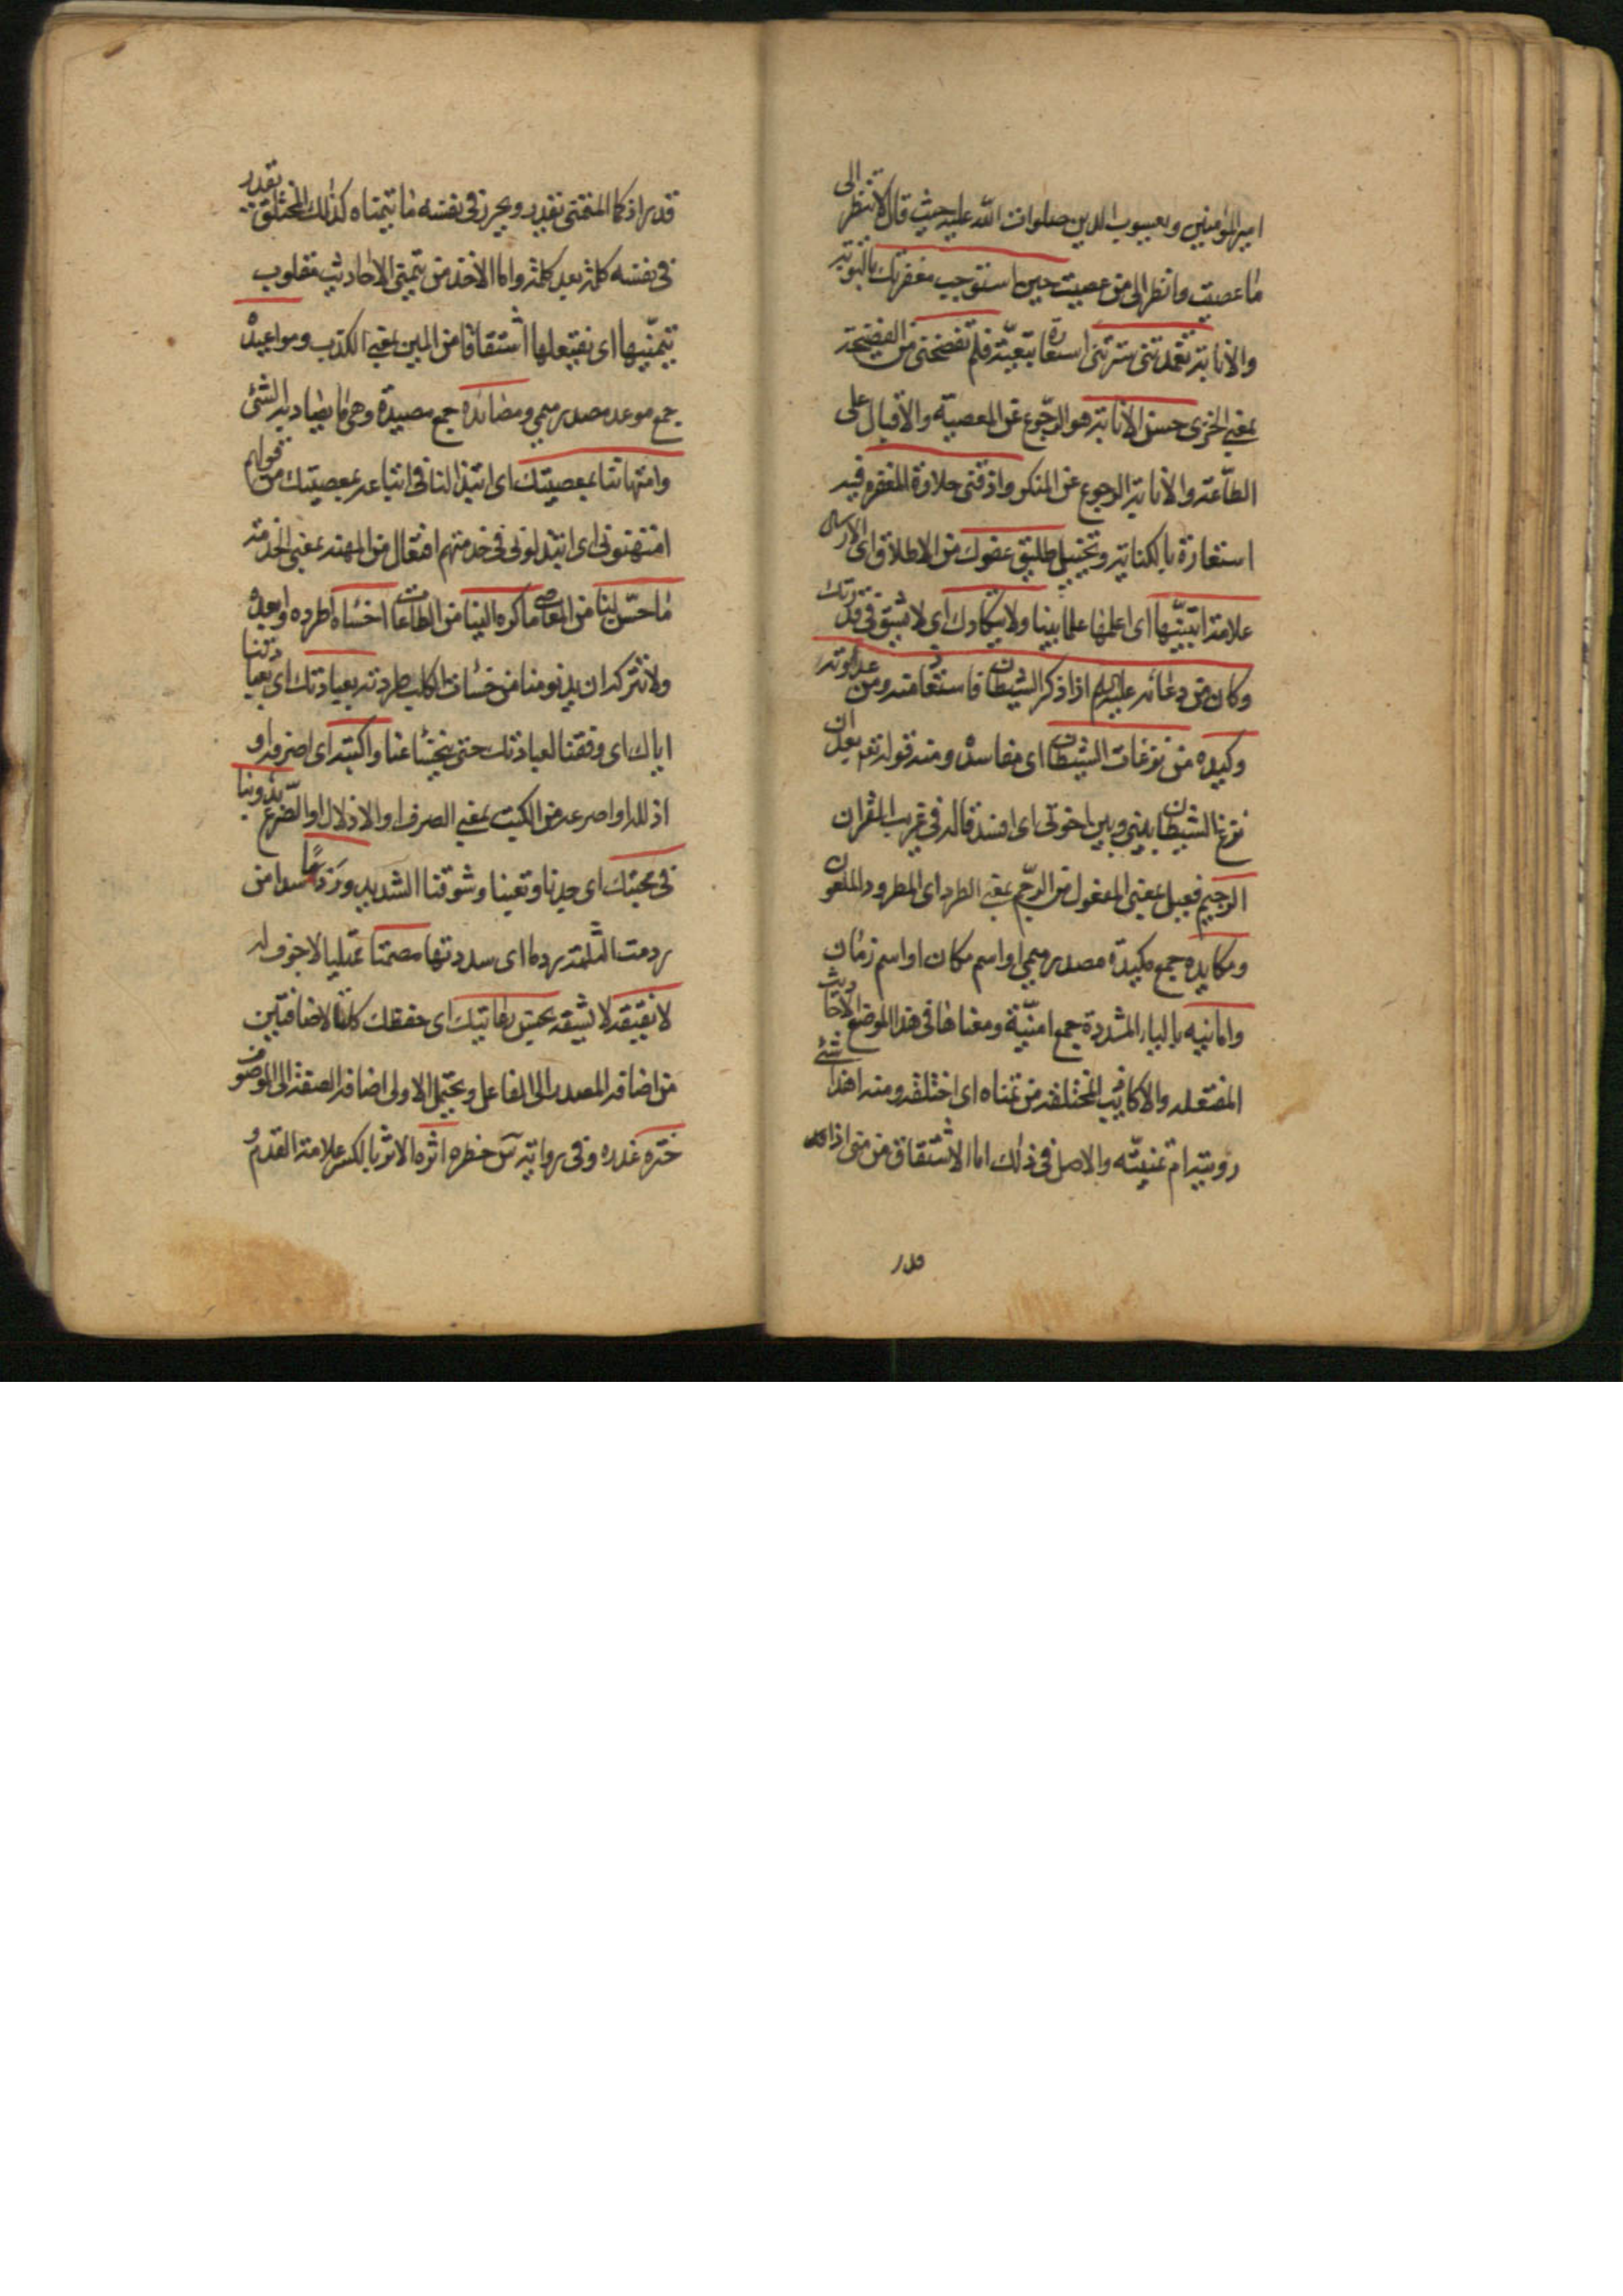 امير المؤمنين ويعسوب الدين صلوات الله عليه حيث قال لا تنظر الى
ما عصيت وانظر الى من عصيت حين استوجب مغفرتك بالتوبة
والانابة تغمدتنى سترتنى استعارة تبعيّة فلم تفضحنى من الفضيحة
بمعنى الخزى حسن الانابة هو الرّجوع عن المعصية والاقبال على
الطّاعة والانابة الرجوع عن المنكر واذقنى حلاوة المغفره فيه
استعارة بالكناية وتخييل طليق عفوك من الاطلاق اى الارسال
علامة اتبيّنها اى اعلمها علما بينا ولا يتكادك اى لا يشق فى قدرتك
وكان من دعائه عليه السلم اذا ذكر الشيطان فاستعاذ منه ومن عداوته
وكيده من نزغات الشيطان اى مفاسده ومنه قوله تعم بعد ان
نزغ الشيطان بينى وبين اخوتى اى افسد قاله فى غريب القران
الرجيم فعيل بمعنى المفعول من الرّجم بمعنى الطرد اى المطرود الملعون
ومكايده جمع مكيدة مصدر ميمى او اسم مكان او اسم زمان
وامانيه بالياء المشددة جمع امنيّة ومعناها فى هذا الموضع الاحاديث
المفتعله والاكاذيب المختلقه من تمناه اى اختلقه ومنه اهذا شئ
رويته ام تمنيته والاصل فى ذلك اما الاشتقاق من منى اذا
قدر
قدر اذ كما المتمنى يقدر ويحرز فى نفسه ما يتمناه كذلك المختلق يقدر
فى نفسه كلمة بعد كلمة واما الاخذ من تمنى الاحاديث مقلوب
تمنيها اى نفتعلها اشتقاقا من المين بمعنى الكذب ومواعيده
جمع موعد مصدر ميمى ومصائده جمع مصيدة وهى ما يصاد به الشئ
وامتهاننا بمعصيتك اى ابتذالنا فى اتباعه بمعصيتك من قولهم
امتهنونى اى ابتذلونى فى خدمتهم افتعال من المهنة بمعنى الخدمة
ما حسّن لنا من المعاصى ما كره الينا من الطاعات اخساه اطرده وابعده
ولا تتركه ان يدنو منا من خسات الكلب طردته بعبادتك اى بعبادتنا
اياك اى وفقنا لعبادتك حتى يخسا عنا واكبته اى اصرفه او
اذلله او اصرعه من الكبت بمعنى الصرف او الاذلال او الصّرع بدؤبنا
فى محبتك اى جدنا وتعبنا وشوقنا الشديد وردمًا سدا من
ردمت الثلمة ردما اى سددتها مصمتا ممتليا لا جوف له
لا يفتقه لا يشقه بحسن رعايتك اى حفظك كلتا الاضافتين
من اضافة المصدر الى الفاعل ويحتمل الاولى اضافة الصفة الى الموصوف
ختره غدره وفى رواية س خطره اثره الاثر بالكسر علامة القدم و